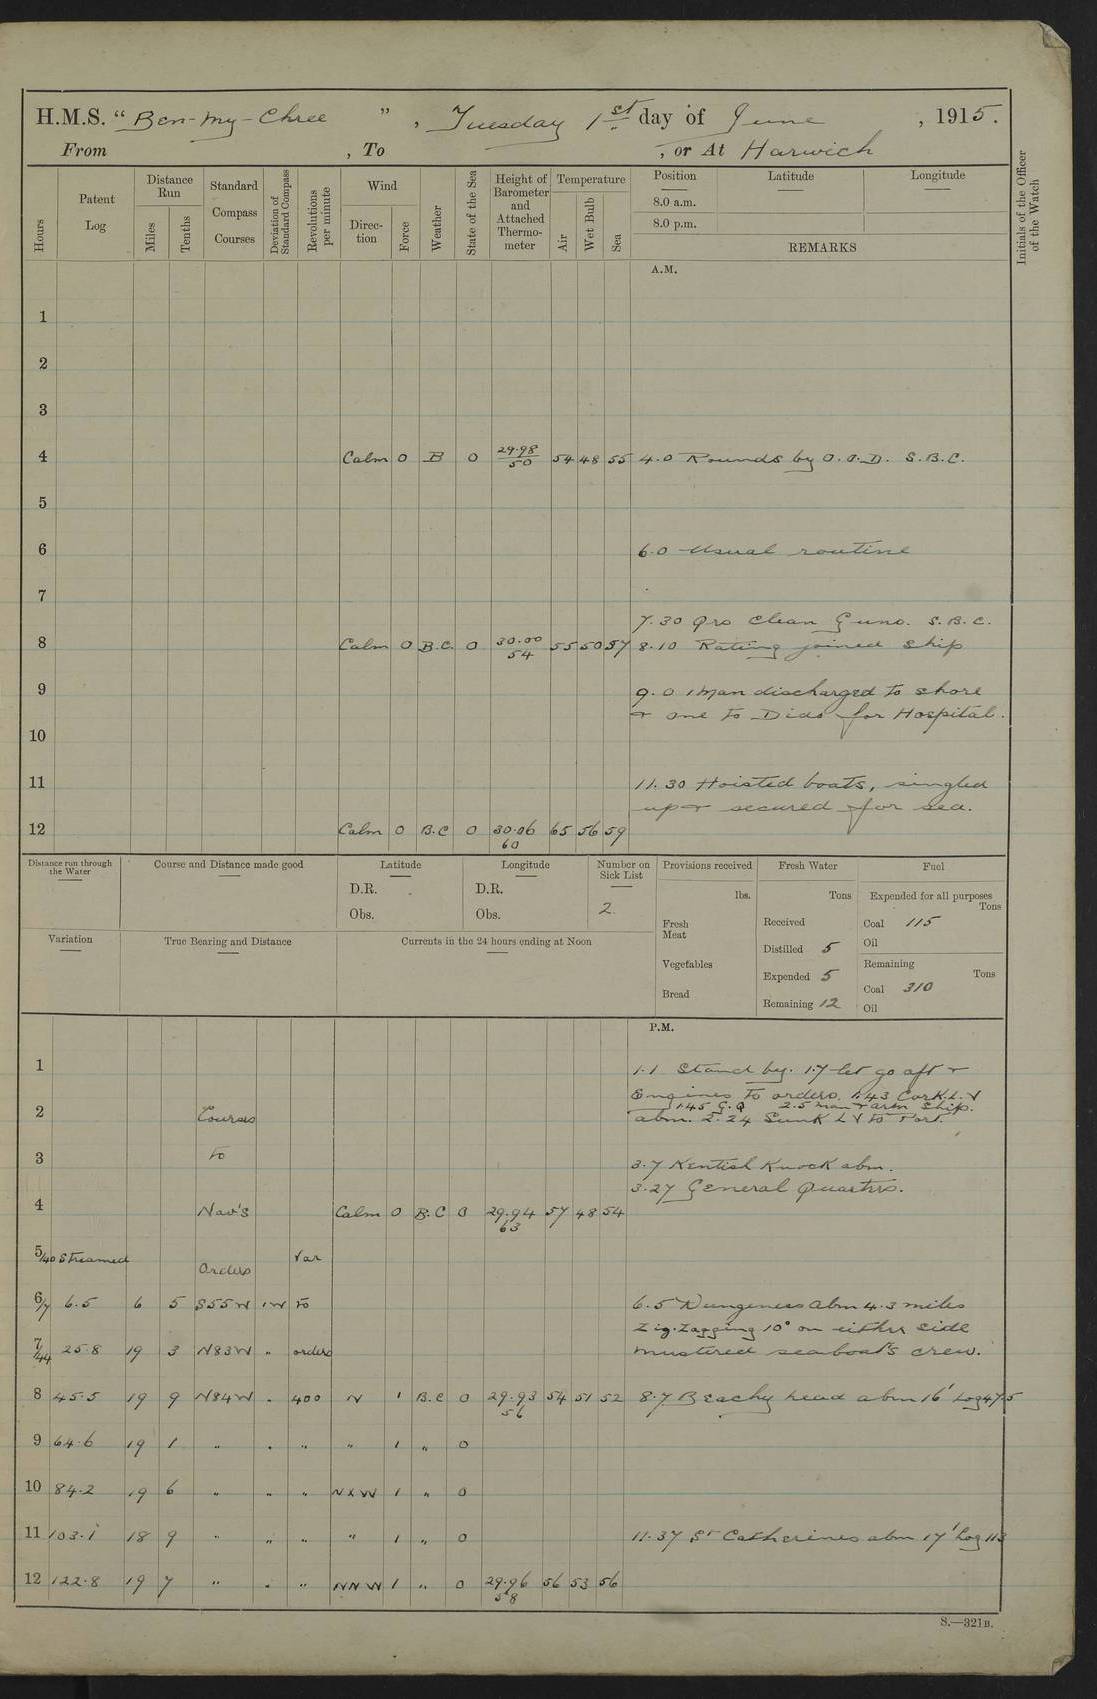 H.M.S. “ Ben-my-Chree ” , Tuesday 1st day of June , 1915.
From , To , or At Harwich
Hours
Patent Log
Distance Run
Miles
Tenths
Standard Compass Courses
Deviation of Standard Compass
Revolutions per minute
Wind
Direction
Force
Weather
State of the Sea
Height of Barometer and Attached Thermometer
Temperature
Air
Wet Bulb
Sea
Position Latitude Longitude
8.0 a.m.
8.0 p.m.
REMARKS
Initials of the Officer of the Watch
A.M.
1
2
3
4 Calm 0 B 0 29.98 54 48 55 4.0 Rounds by O.O.D. S.B.C.
50
5
6 6.0 Usual routine
7
7.30 Qrs clean Guns. S.B.C.
8 Calm 0 B.C. 0 30.00 55 50 57 8.10 Rating joined ship
54
9 9.0 1 Man discharged to shore
+ one to Dido for Hospital.
10
11 11.30 Hoisted boats, singled
up + secured for sea.
12 Calm 0 B.C 0 30.06 65 56 59
60
Distance run through the Water
Course and Distance made good
Latitude
D.R.
Obs.
Longitude
D.R.
Obs.
Number on Sick List
2
Provisions received
lbs.
Fresh Meat
Vegetables
Bread
Fresh Water
Tons
Received
Distilled 5
Expended 5
Remaining 12
Fuel
Expended for all purposes
Tons
Coal 115
Oil
Remaining
Tons
Coal 310
Oil
Variation
True Bearing and Distance
Currents in the 24 hours ending at Noon
P.M.
1 1.1 Stand by. 1.7 let go aft +
Engines to orders. 1.43 Cork L.V
1.45 G.Q 2.5 man + arm Ship.
2 Courses abm. 2.24 Sunk L V to Port.
3 to 3.7 Kentish Knock abm.
3.27 General Quarters.
4 Nav's Calm 0 B.C 0 29.94 57 48 54
63
5/40 Streamed Orders Var
6/7 6.5 6 5 S55W 1W to 6.5 Dungeness abm 4.3 miles
Zig-Zagging 10° on either side
7/44 25.8 19 3 N83W " orders mustered seaboat's crew.
8 45.5 19 9 N84W " 400 N 1 B.C 0 29.93 54 51 52 8.7 Beachy head abm 16' Log 47.5
56
9 64.6 19 1 " " " " 1 " 0
10 84.2 19 6 " " " NXW 1 " 0
11 103.1 18 9 " " " " 1 " 0 11.37 St Catherines abm 17' Log 113
12 122.8 19 7 " " " NNW 1 " 0 29.96 56 53 56
58
S.—321B.